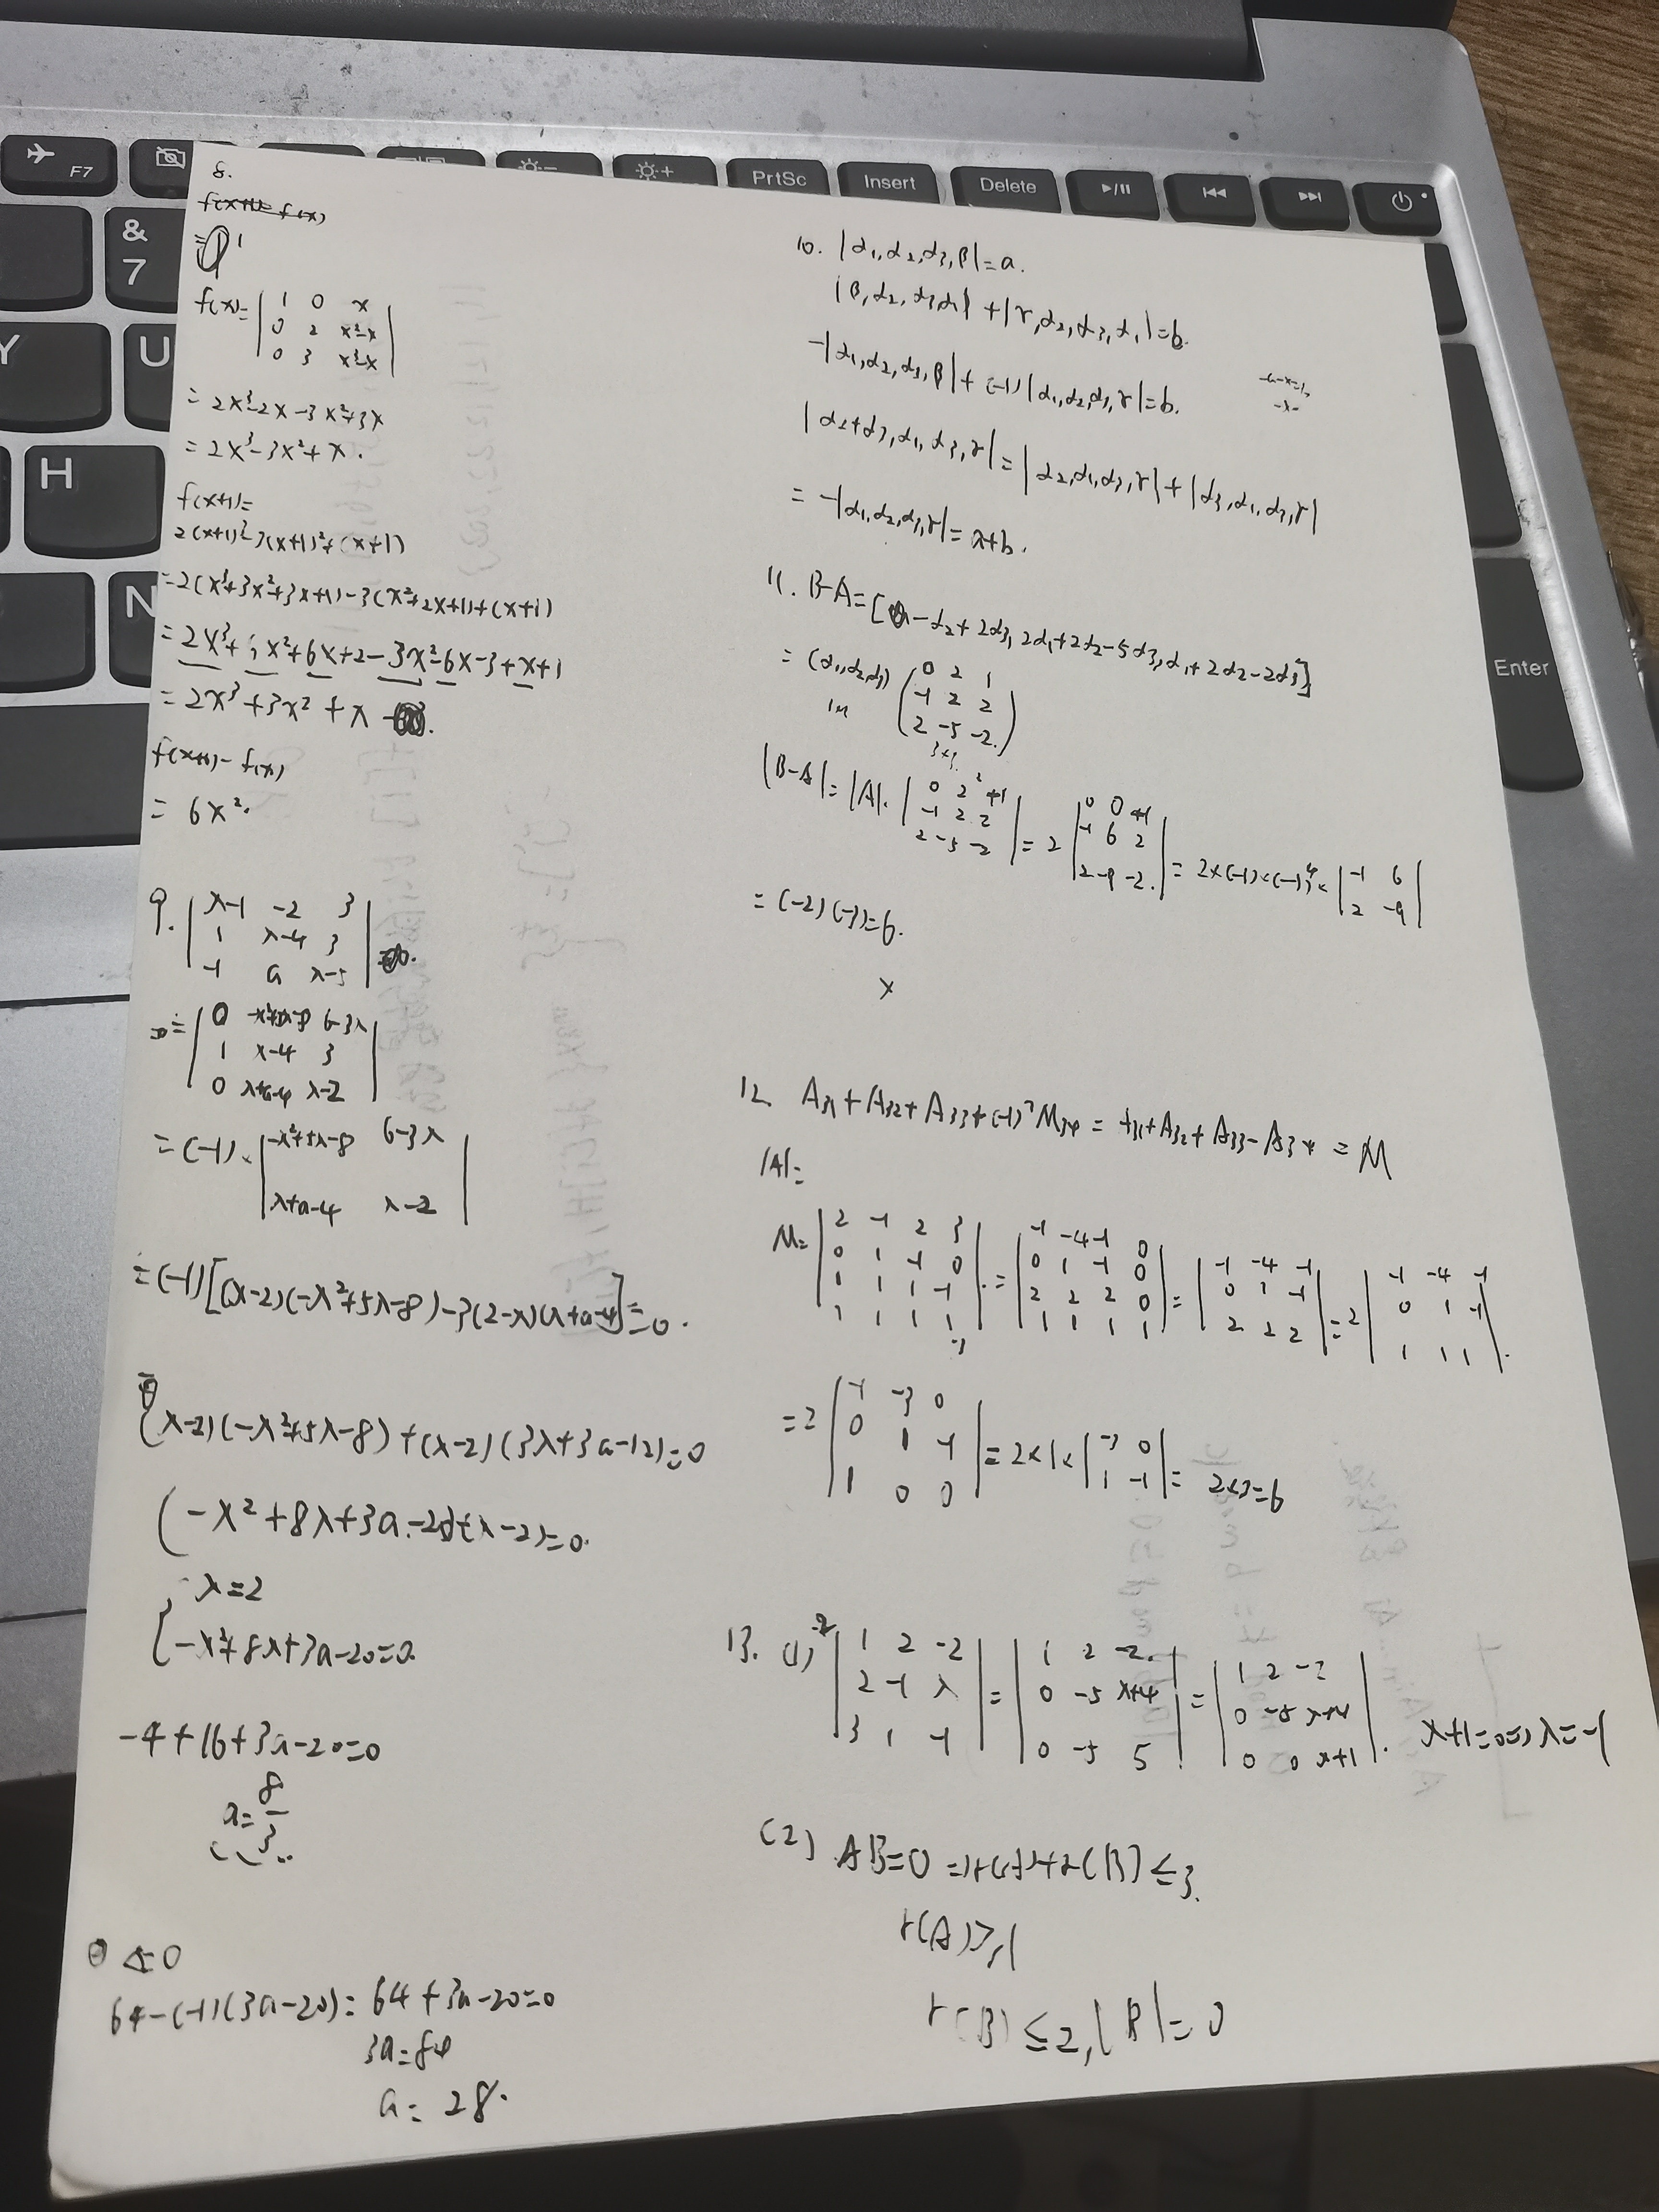 8.
f(x)=| 1 0 x
0 2 x²-x
0 3 x³-x |
= 2x³-2x-3x²+3x
= 2x³-3x²+x.
f(x+1)=
2(x+1)³-3(x+1)²+(x+1)
=2(x³+3x²+3x+1)-3(x²+2x+1)+(x+1)
=2x³+6x²+6x+2-3x²-6x-3+x+1
=2x³+3x²+x
f(x+1)-f(x)
= 6x².
9. | λ-1 -2 3
1 λ-4 3
-1 a λ-5 |
= | 0 -λ²+5λ-8 6-3λ
1 λ-4 3
0 λ+a-4 λ-2 |
=(-1)× | -λ²+5λ-8 6-3λ
λ+a-4 λ-2 |
=(-1)[(λ-2)(-λ²+5λ-8)-3(2-λ)(λ+a-4)]=0.
(λ-2)(-λ²+5λ-8)+(λ-2)(3λ+3a-12)=0
(-λ²+8λ+3a-20)(λ-2)=0.
{ λ=2
-λ²+8λ+3a-20=0.
-4+16+3a-20=0
a=8/3
Δ=0
64-(-1)(3a-20)=64+3a-20=0
3a=84
a=28.
10. |α₁,α₂,α₃,β|=a.
|β,α₂,α₃,α₁|+|γ,α₂,α₃,α₁|=b.
-|α₁,α₂,α₃,β|+(-1)|α₁,α₂,α₃,γ|=b.
-a-x=b
-x=
|α₂+α₃,α₁,α₃,γ|=|α₂,α₁,α₃,γ|+|α₃,α₁,α₃,γ|
= -|α₁,α₂,α₃,γ|=a+b.
11. B-A=[-α₂+2α₃, 2α₁+2α₂-5α₃, α₁+2α₂-2α₃]
= (α₁,α₂,α₃) ( 0 2 1
-1 2 2
2 -5 -2 )
3×3
|B-A|=|A|· | 0 2 +1
-1 2 2
2 -5 -2 | = 2 | 0 0 +1
-1 6 2
2 -9 -2 | = 2×(-1)×(-1)⁴× | -1 6
2 -9 |
= (-2)(-3)=6.
x
12. A₃₁+A₃₂+A₃₃+(-1)⁷M₃₄=A₃₁+A₃₂+A₃₃-A₃₄=M
|A|=
M= | 2 -1 2 3
0 1 -1 0
1 1 1 -1
1 1 1 1 | = | -1 -4 -1 0
0 1 -1 0
2 2 2 0
1 1 1 1 | = | -1 -4 -1
0 1 -1
2 2 2 | =2 | -1 -4 -1
0 1 -1
1 1 1 |.
=2 | -1 -3 0
0 1 -1
1 0 0 | = 2×1× | -3 0
1 -1 | = 2×3=6
13. (1) | 1 2 -2
2 -1 λ
3 1 -1 | = | 1 2 -2
0 -5 λ+4
0 -5 5 | = | 1 2 -2
0 -5 λ+4
0 0 λ+1 |. λ+1=0⇒λ=-1
(2) AB=0⇒r(A)+r(B)≤3.
r(A)≥1
r(B)≤2, |B|=0
F7
&
7
Y
U
H
N
PrtSc
Insert
Delete
Enter